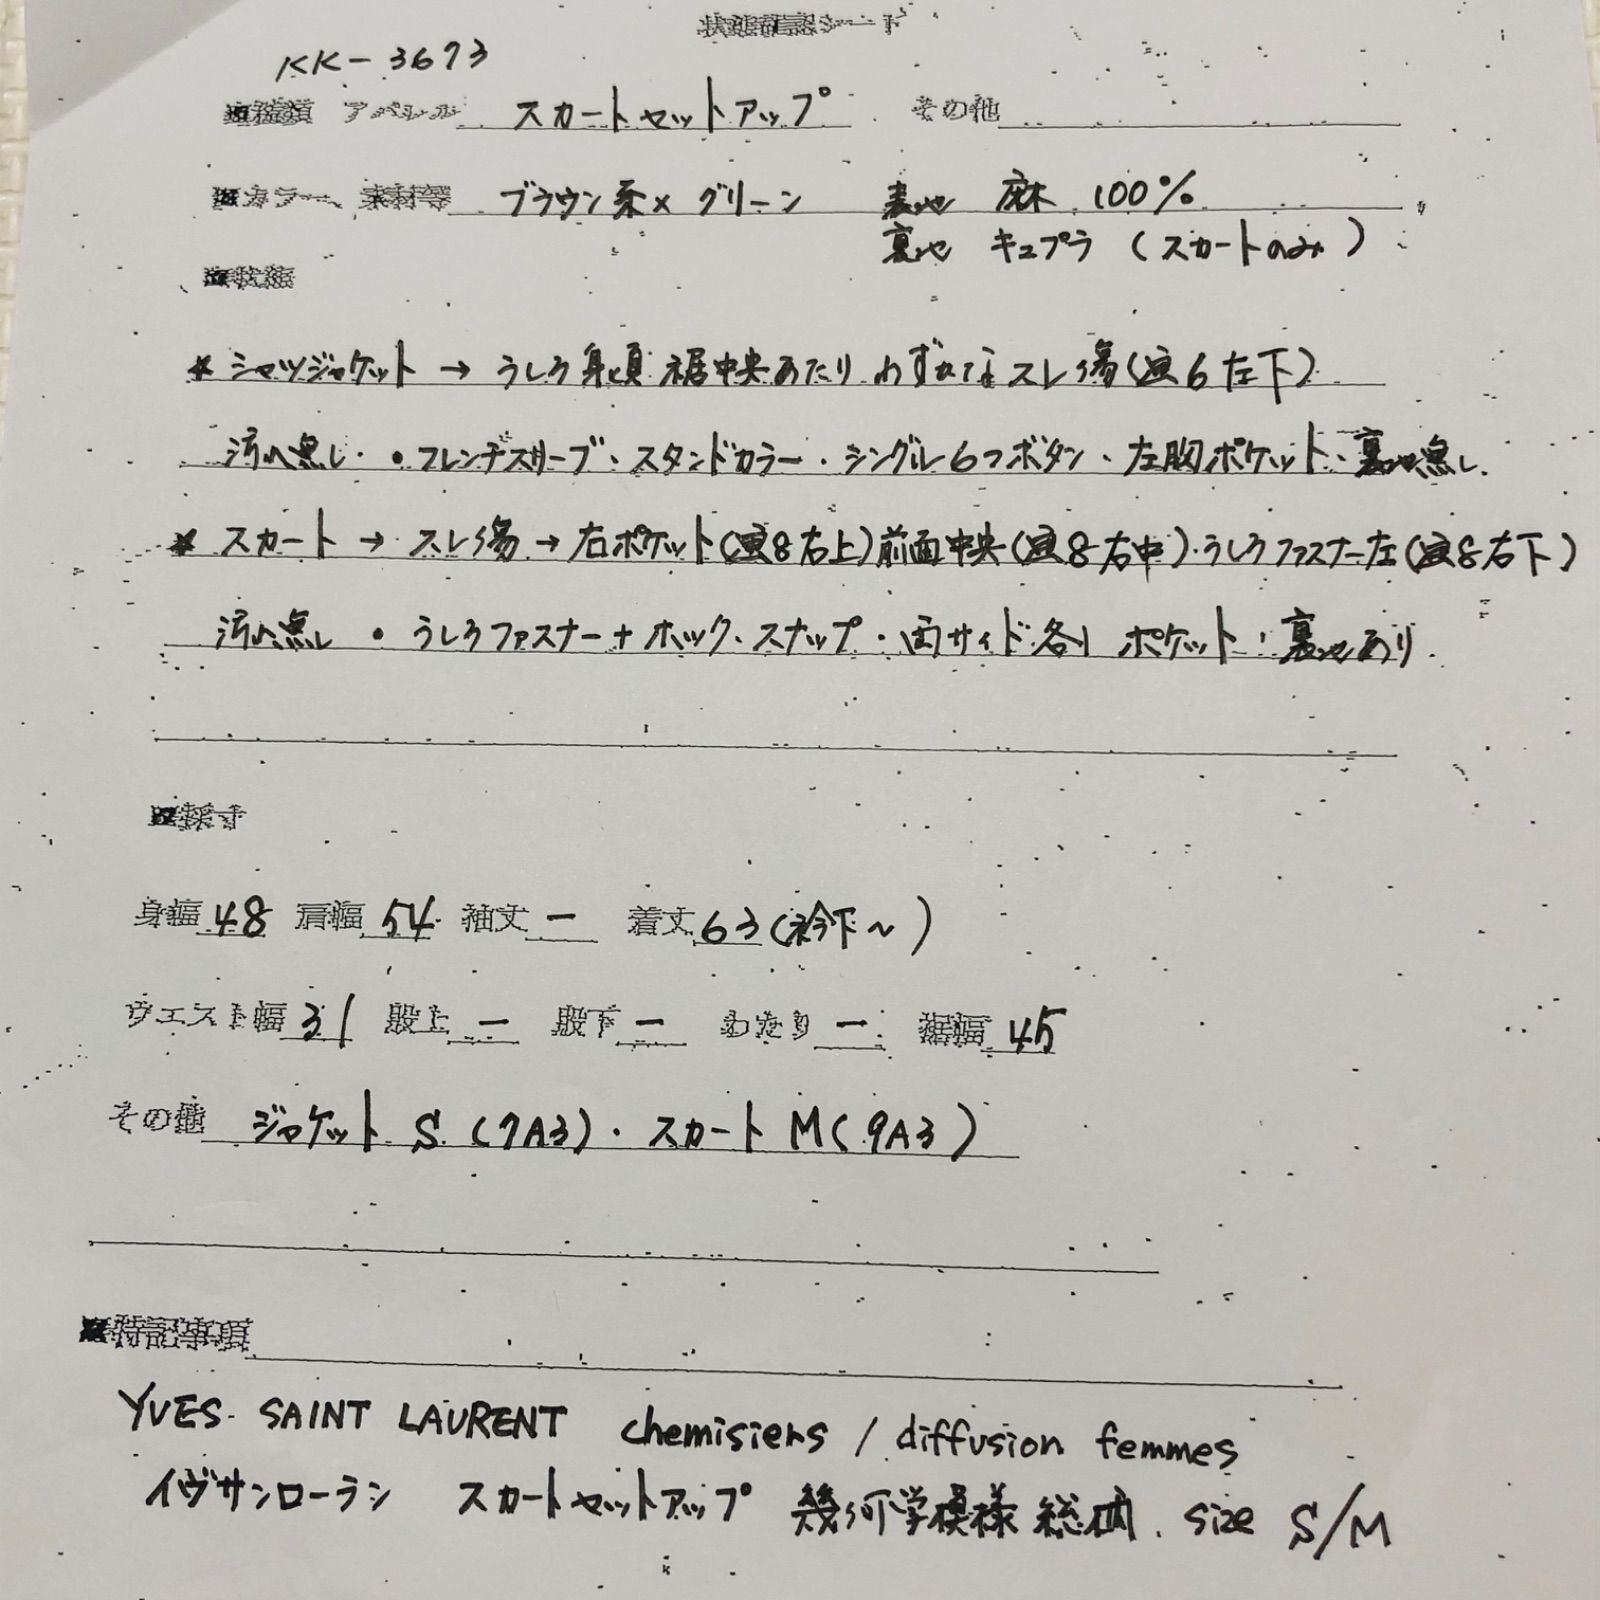 状態確認シート
KK-3673
■種類 アパレル スカートセットアップ その他
■カラー、素材等 ブラウン系×グリーン 表地 麻 100%
裏地 キュプラ (スカートのみ)
■状態
* シャツジャケット → うしろ身頃 裾中央あたり わずかなスレ傷(画6左下)
汚れ無し・ •フレンチスリーブ・スタンドカラー・シングル6つボタン・左胸ポケット・裏地無し.
* スカート → スレ傷 → 右ポケット(画8右上)前面中央(画8右中)・うしろファスナー左(画8右下)
汚れ無し • うしろファスナー+ホック、スナップ・両サイド各1 ポケット・裏地あり.
■採寸
身幅 48 肩幅 54 袖丈 ー 着丈 63(衿下~)
ウエスト幅 31 股上 ー 股下 ー わたり ー 裾幅 45
その他 ジャケット S (7A3)・スカート M(9A3)
■特記事項
YVES SAINT LAURENT chemisiers / diffusion femmes
イヴサンローラン スカートセットアップ 幾何学模様 総柄. size S/M